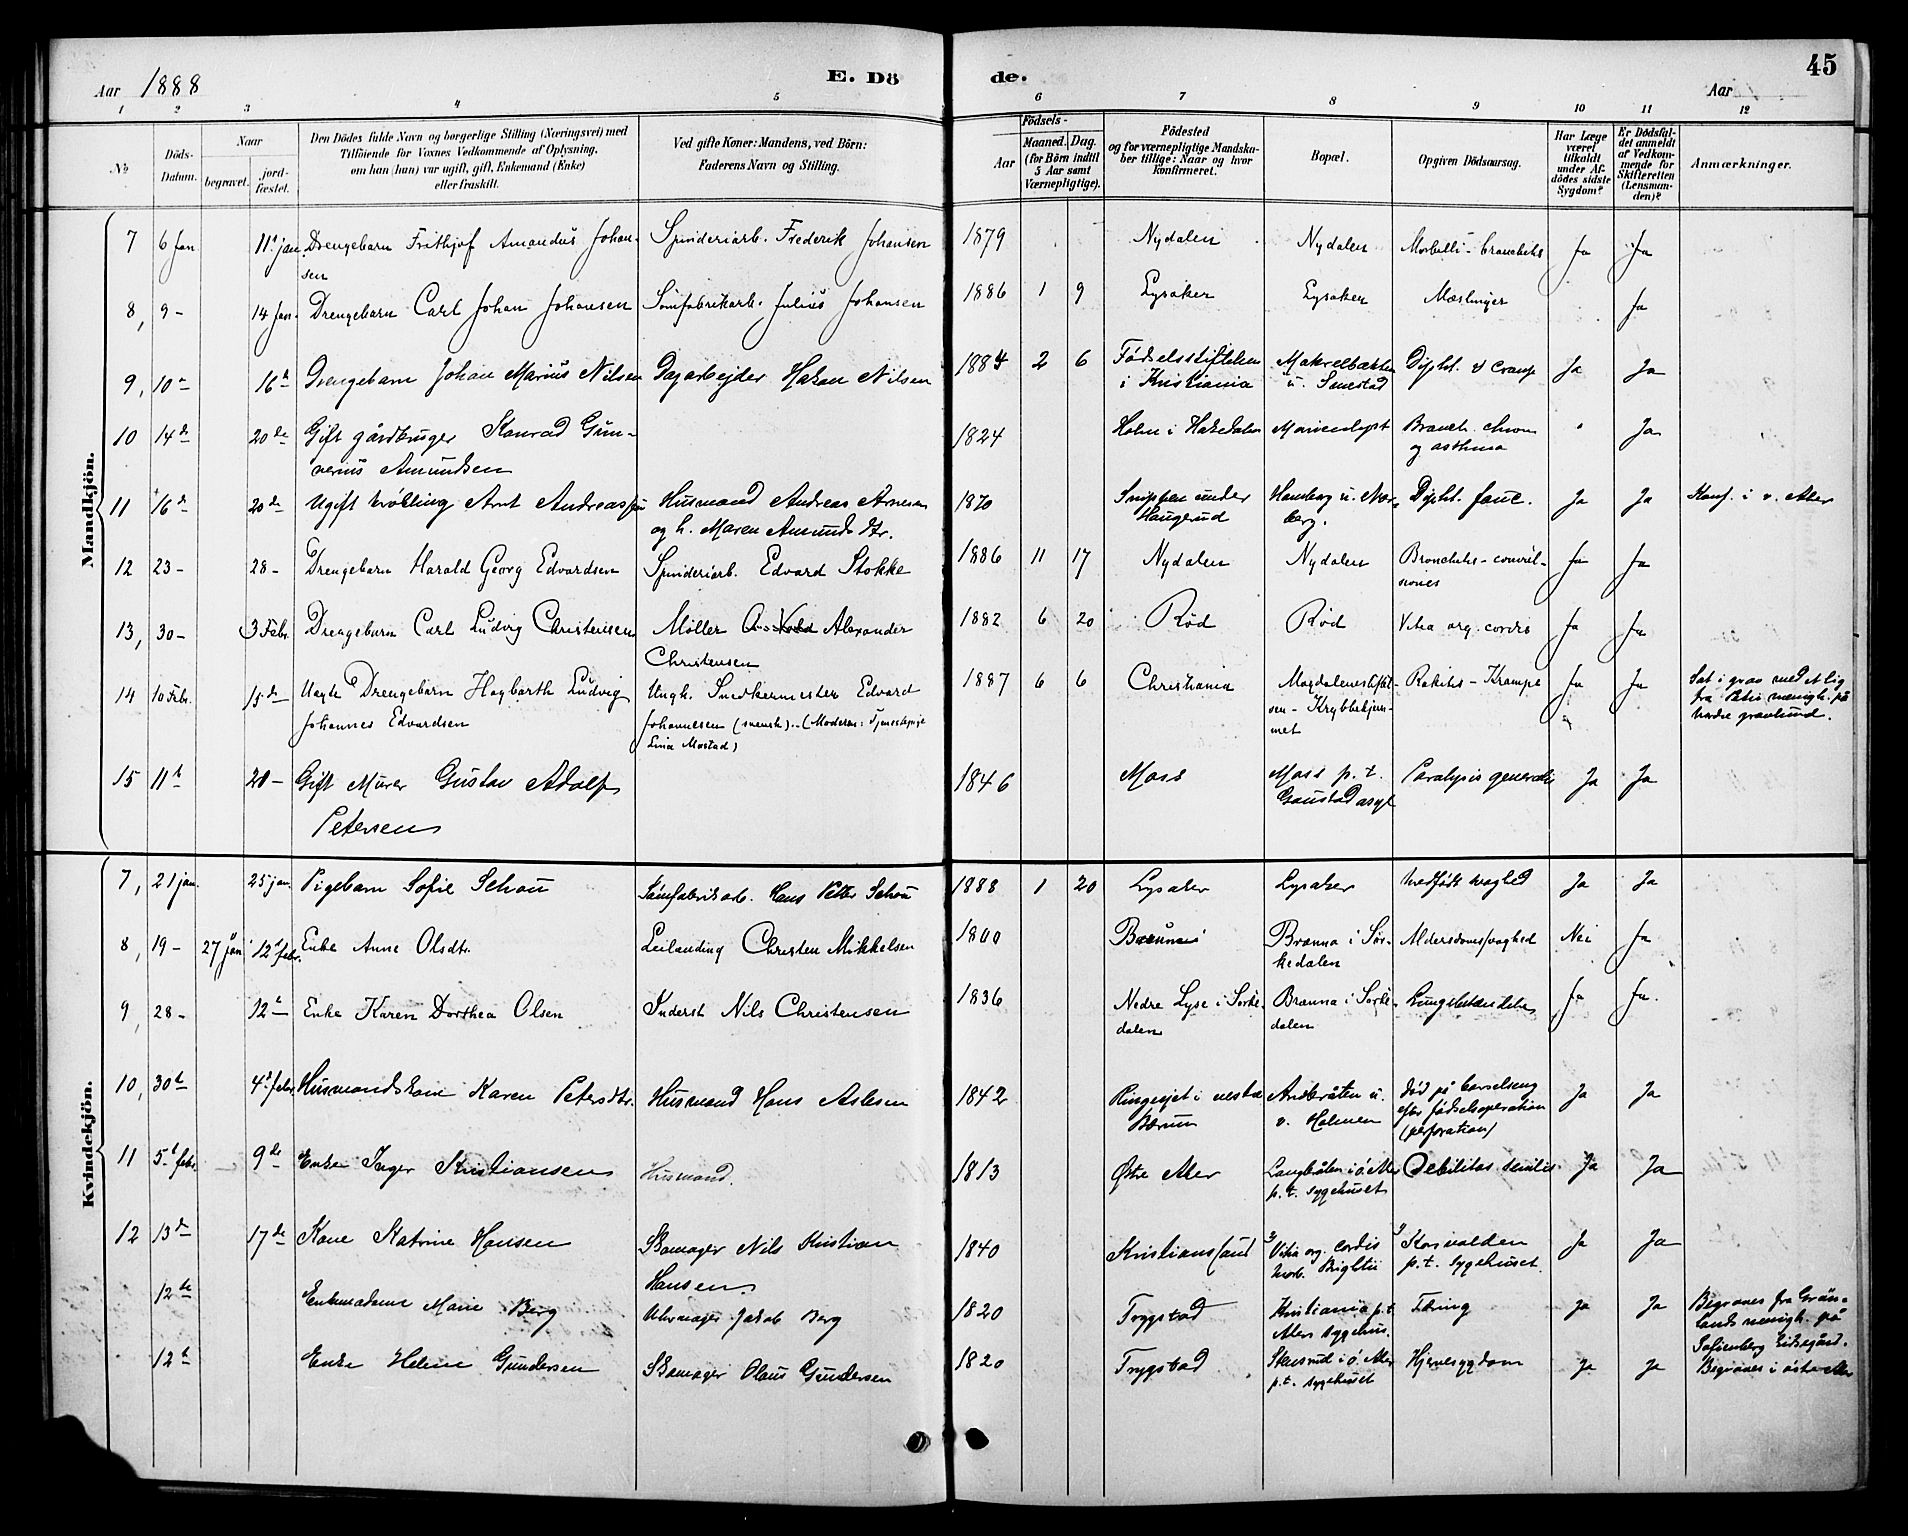 Aar 1888
E. Dö
de.
Aar
45
1 2 3 4 5 6 7 8 9 10 11 12
No
Döds-Datum.
Naar
begravet.
jord-fæstet.
Den Dödes fulde Navn og borgerlige Stilling (Næringsvei) med
Tilföiende for Voxnes Vedkommende af Oplysning,
om han (hun) var ugift, gift, Enkemand (Enke)
eller fraskilt.
Ved gifte Koner: Mandens, ved Börn:
Faderens Navn og Stilling.
Födsels-
Aar
Maaned. Dag.
(for Börn indtil
5 Aar samt
Værnepligtige).
Födested
og for værnepligtige Mandska-
ber tillige: Naar og hvor
konfirmeret.
Bopæl.
Opgiven Dödsaarsag.
Har Læge
været
tilkaldt
under Af-
dödes sidste
Sygdom?
Er Dödsfal-
det anmeldt
af Vedkom-
mende for
Skifteretten
(Lensman-
den)?
Anmærkninger.
Mandkjön.
7 6 Jan 11t jan Drengebarn Frithjof Amandus Johan- Spinderiarb. Frederik Johansen 1879 Nydalen Nydalen Morbilli - bronchitis Ja Ja
sen
8, 9 - 14 Jan. Drengebarn Carl Johan Johansen Sømfabrikarb. Julius Johansen 1886 1 9 Lysaker Lysaker Mæslinger Ja
9, 10 16 Drengebarn Johan Marius Nilsen Dagarbejder Hakon Nilsen 1884 2 6 Fødselsstiftelsen Makrelbækken Dipht. & croup Ja Ja
i Kristiania u. Smestad
10 14de 20de Gift gårdbruger Konrad Gun- 1824 Holm i Hakedalen Marienlyst Bronch. chron " Ja
nerius Amundsen og asthma
11 16de 20de Ugift Andreas Arnesen 1870 Snippen under Ja Ja Konf. i v. Aker
og h. Maren Amundsdtr. Haugerud berg.
12 23 - 28 - Drengebarn Harald Georg Edvardsen Spinderiarb. Edvard Stokke 1886 11 17 Nydalen Nydalen Bronchitis - convul- Ja Ja
siones
13, 30 - 3 Febr. Drengebarn Carl Ludvig Christensen Møller Alexander 1882 6 20 Rød Rød Vitia org. cordis Ja Ja
Christensen
14 10 Febr. 15de Uægte Drengebarn Hagbarth Ludvig Ungk. Snedkermester Edvard 1887 6 6 Christiania Magdalenestiftel- Rakitis - Krampe Ja Ja Sat i grav med et lig
Johannes Edvardsen Johannesen (svensk). - (Moderen: Tjenestepige sen - Krybbehjem- fra Petri menigh. på
Lina Mostad) met nordre gravlund.
15 11te 20 - Gift Murer Gustav Adolf 1846 Moss Moss p. t. Paralysis generalis Ja Ja
Petersen Gaustad asyl
Kvindekjön.
7, 21 jan. 25 jan. Pigebarn Sofie Schou Sømfabrikarb. Hans Petter Schou 1888 1 20 Lysaker Lysaker Medfødt svaghed Ja Ja
8, 19 - 27 jan 12t febr. Enke Anne Olsdtr. Leilænding Christen Mikkelsen 1800 Brænna i Sør- Alderdomssvaghed Nei Ja
kedalen
9, 28 - 12t Enke Karen Dorthea Olsen Inderst Nils Christensen 1836 Nedre Lyse i Sørke- Brænna i Sørke- Lungebetændelse Ja Ja.
dalen dalen
10, 30te 4t febr. Husmandskone Karen Petersdtr. Husmand Hans Aslesen 1842 Ringerijet i vestre u. død på barselseng Ja Ja
Bærum v. Holmen efter fødselsoperation
(perforation)
11 5te febr. 9de Enke Inger Kristiansen Husmand. 1813 Østre Aker Langbråten i ø. Aker Debilitas senilis. Ja Ja
p. t. sygehuset
12 13de 17de Kone Katrine Hansen Skomager Nils Kristian 1840 Kristianssund Vitia org. Cordis Korsvolden Ja Ja
Hansen. morb. Brightii p. t. sygehuset.
12te Enkemadame Marie Berg Uhrmager Jakob Berg 1820 Trygstad Kristiania p. t. Tæring Ja Ja Begraves fra Grøn-
Akers sygehus. lands menigh. på
Sofienberg kirkegård.
12te Enke Helene Gundersen Skomager Olaus Gundersen 1820 Trygstad Stensrud i ø. Aker Hjernesygdom Ja Ja Begraves i østre Aker
p. t. sygehuset